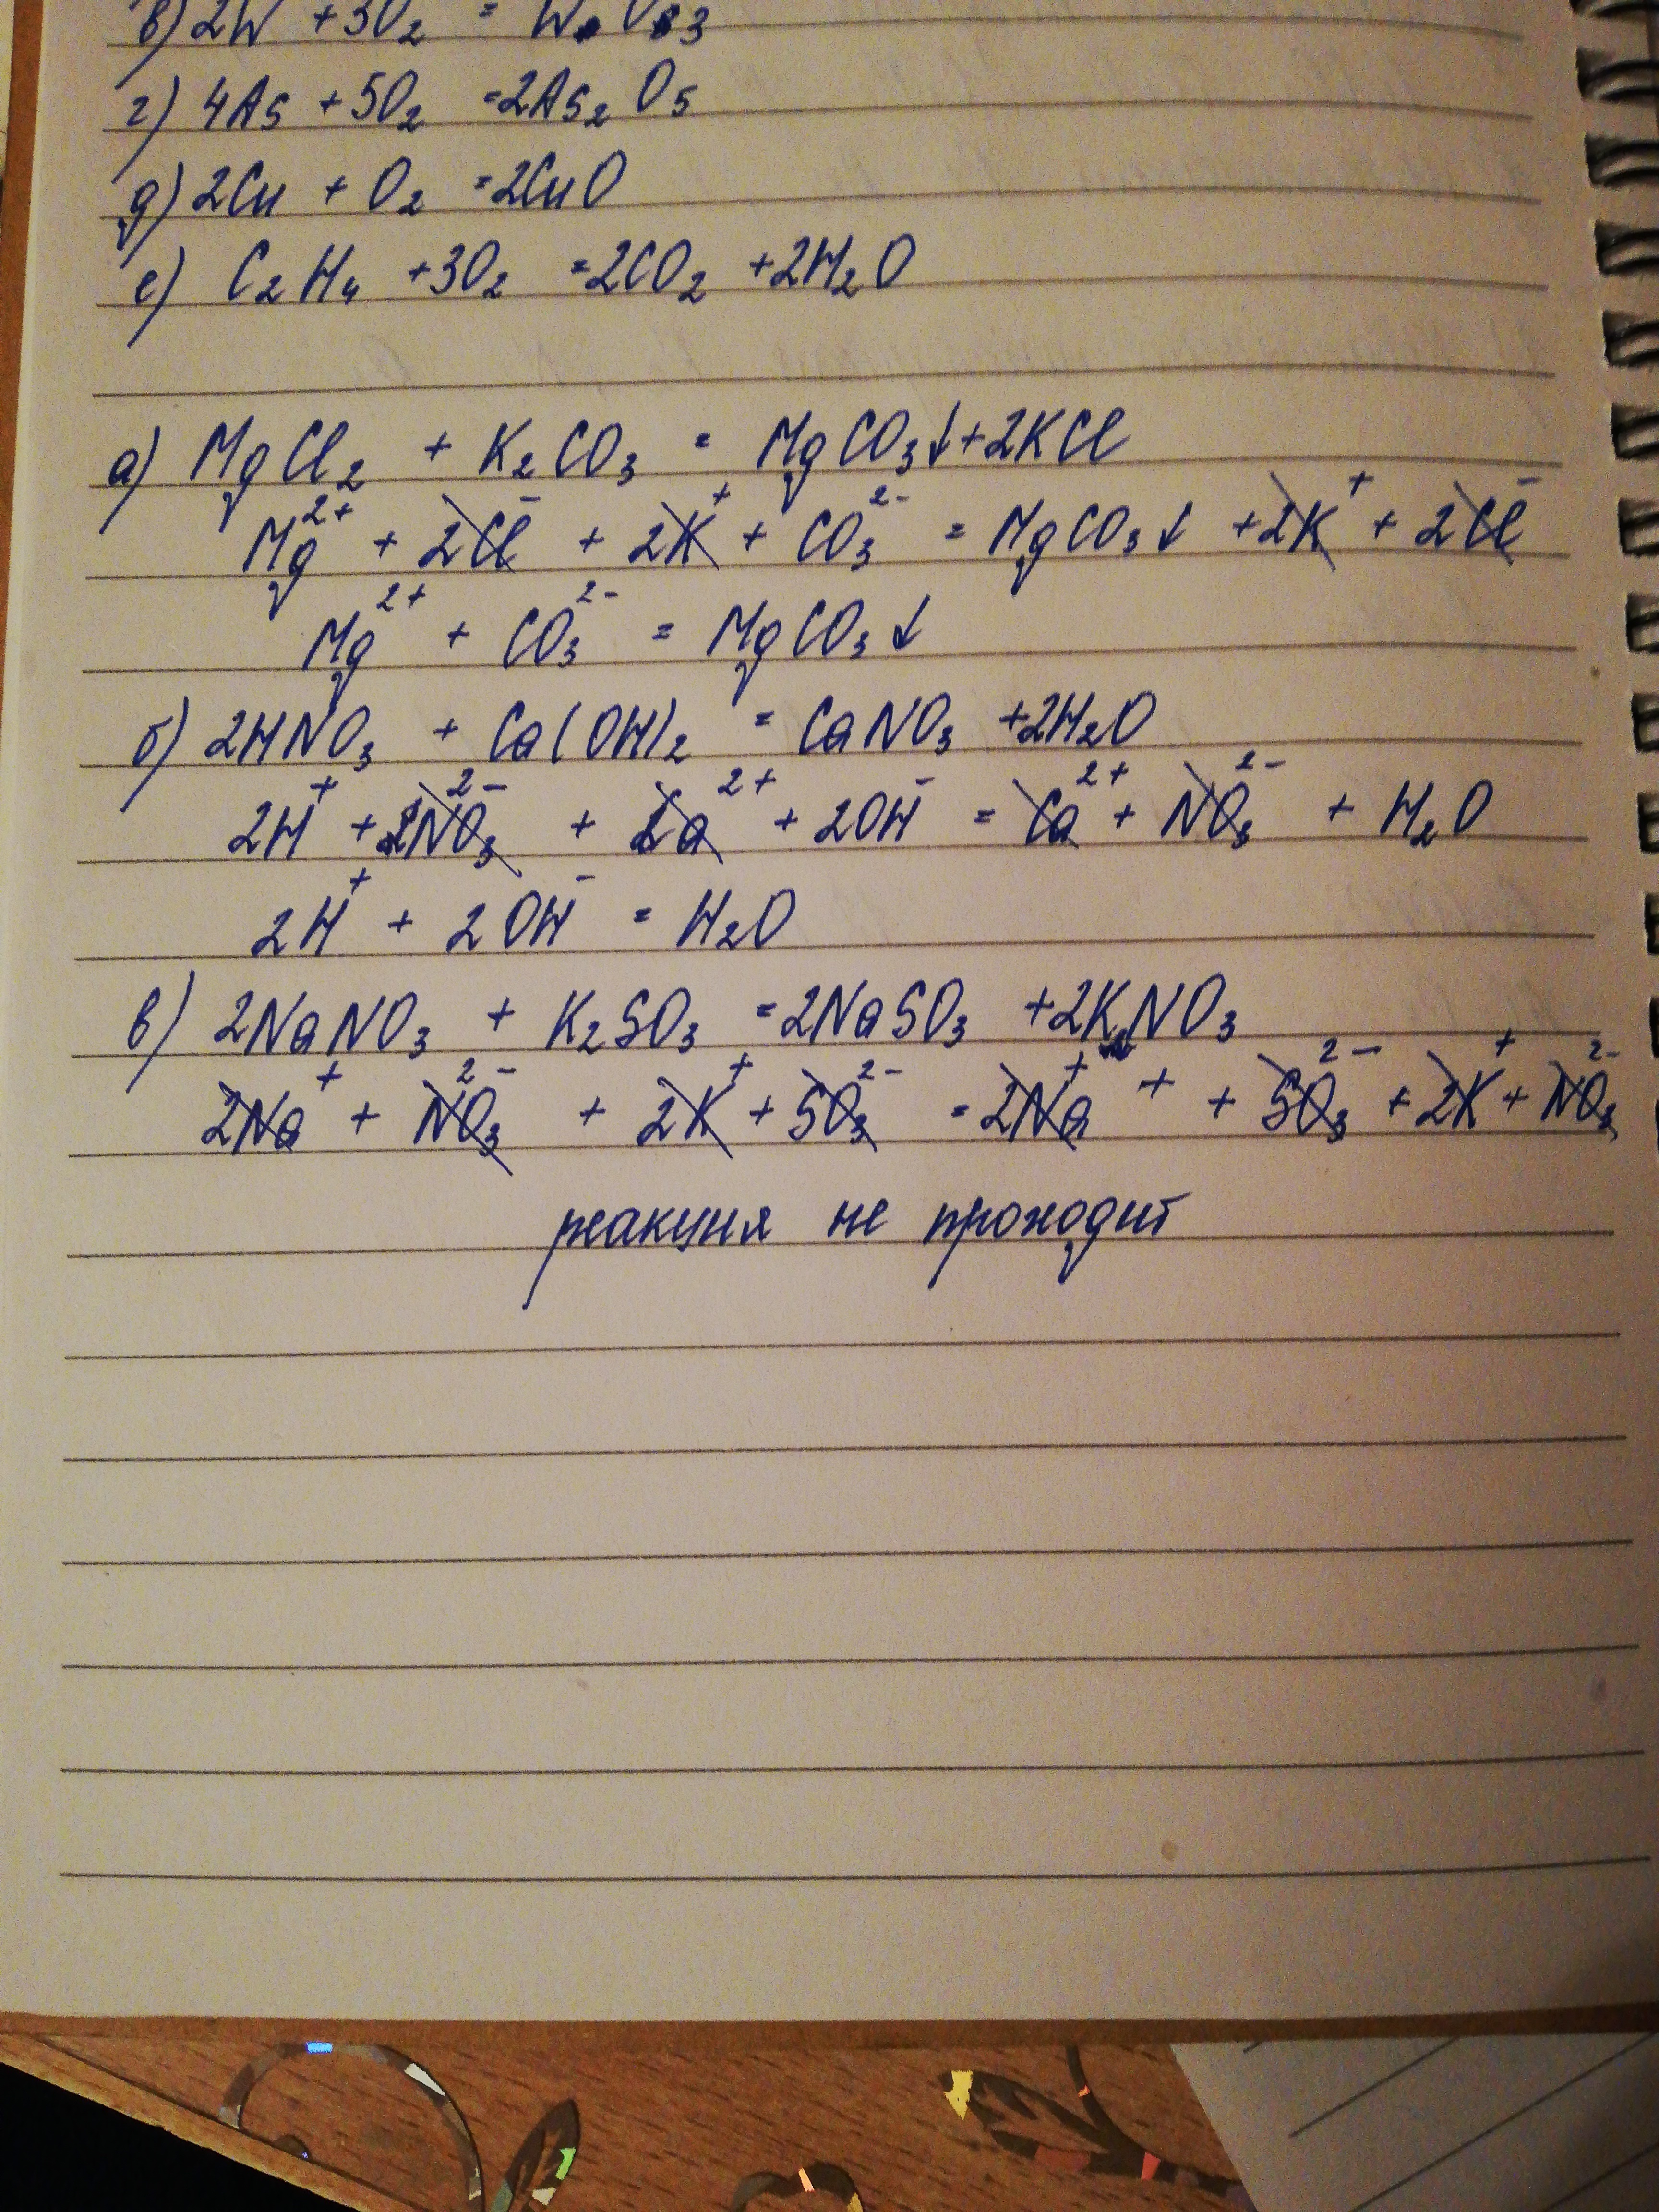 в) 2W + 3O₂ = WO₃
г) 4As + 5O₂ = 2As₂O₅
д) 2Cu + O₂ = 2CuO
е) C₂H₄ + 3O₂ = 2CO₂ + 2H₂O
а) MgCl₂ + K₂CO₃ = MgCO₃↓ + 2KCl
Mg²⁺ + 2Cl⁻ + 2K⁺ + CO₃²⁻ = MgCO₃↓ + 2K⁺ + 2Cl⁻
Mg²⁺ + CO₃²⁻ = MgCO₃↓
б) 2HNO₃ + Ca(OH)₂ = CaNO₃ + 2H₂O
2H⁺ + 2NO₃²⁻ + Ca²⁺ + 2OH⁻ = Ca²⁺ + NO₃²⁻ + H₂O
2H⁺ + 2OH⁻ = H₂O
в) 2NaNO₃ + K₂SO₃ = 2NaSO₃ + 2KNO₃
2Na⁺ + NO₃²⁻ + 2K⁺ + SO₃²⁻ = 2Na⁺ + + SO₃²⁻ + 2K⁺ + NO₃²⁻
реакция не проходит